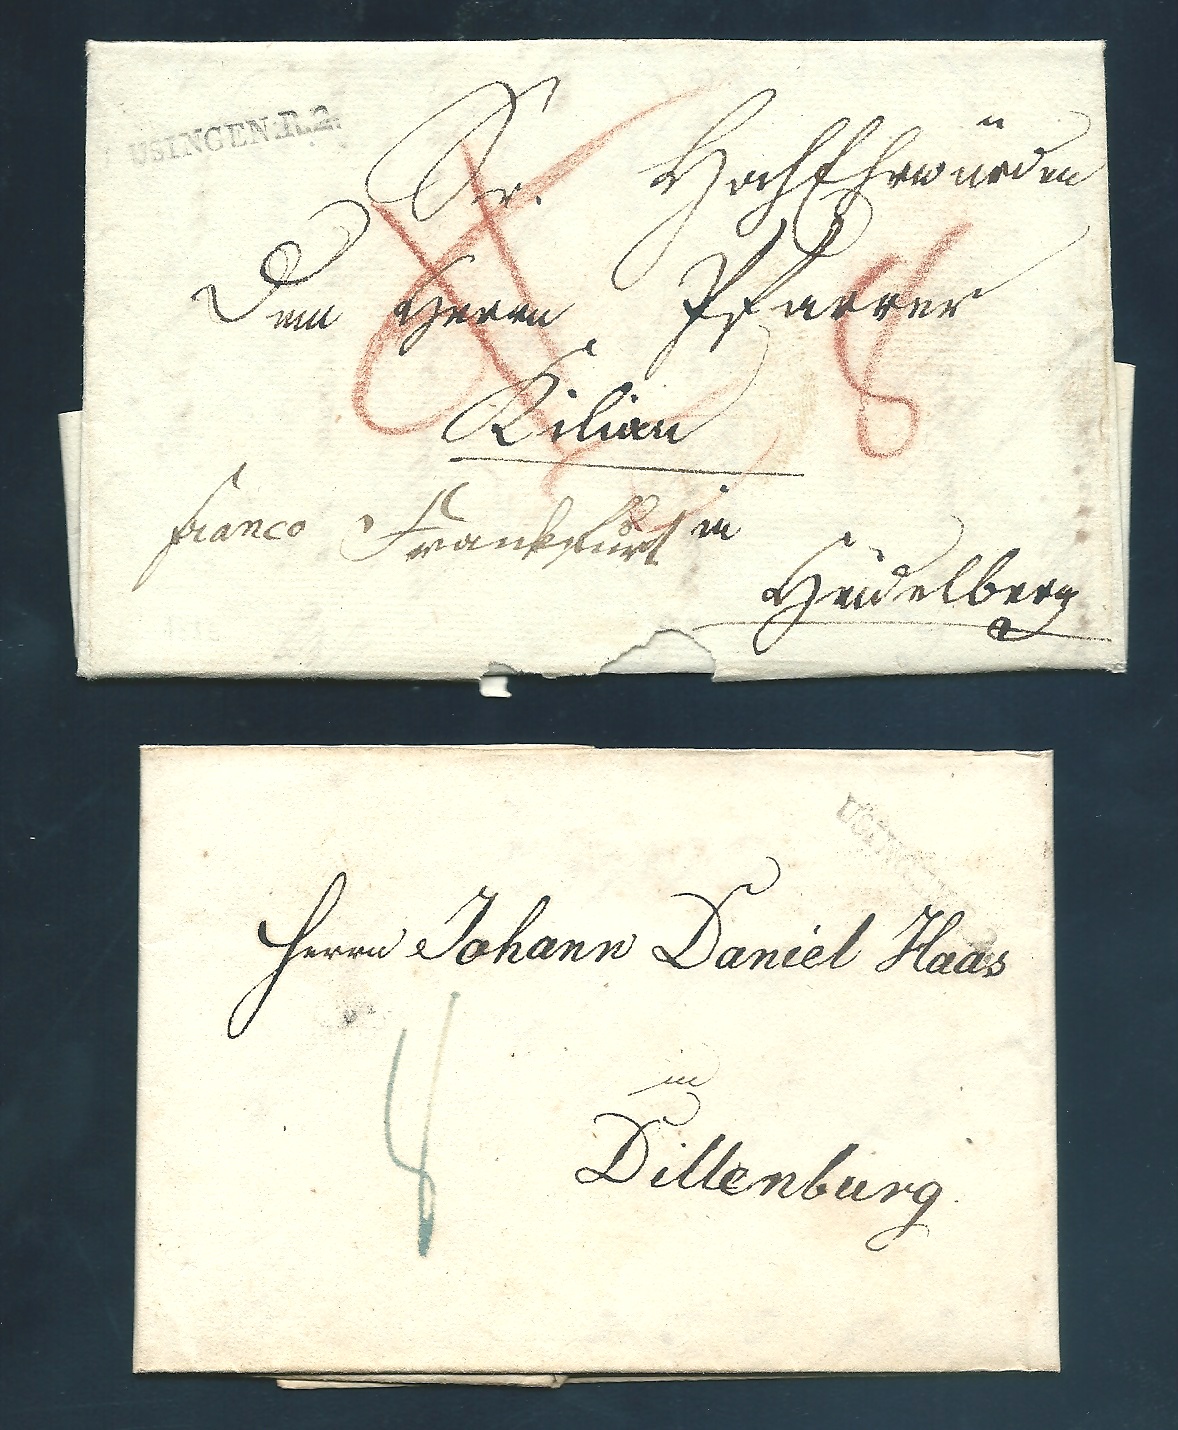 USINGEN.R.2.
Sr. HochEhrwürden
Dem Herrn Pfarrer
Kilian
franco Frankfurt in
Heidelberg
8
Herrn Johann Daniel Haas
4
in
Dillenburg.